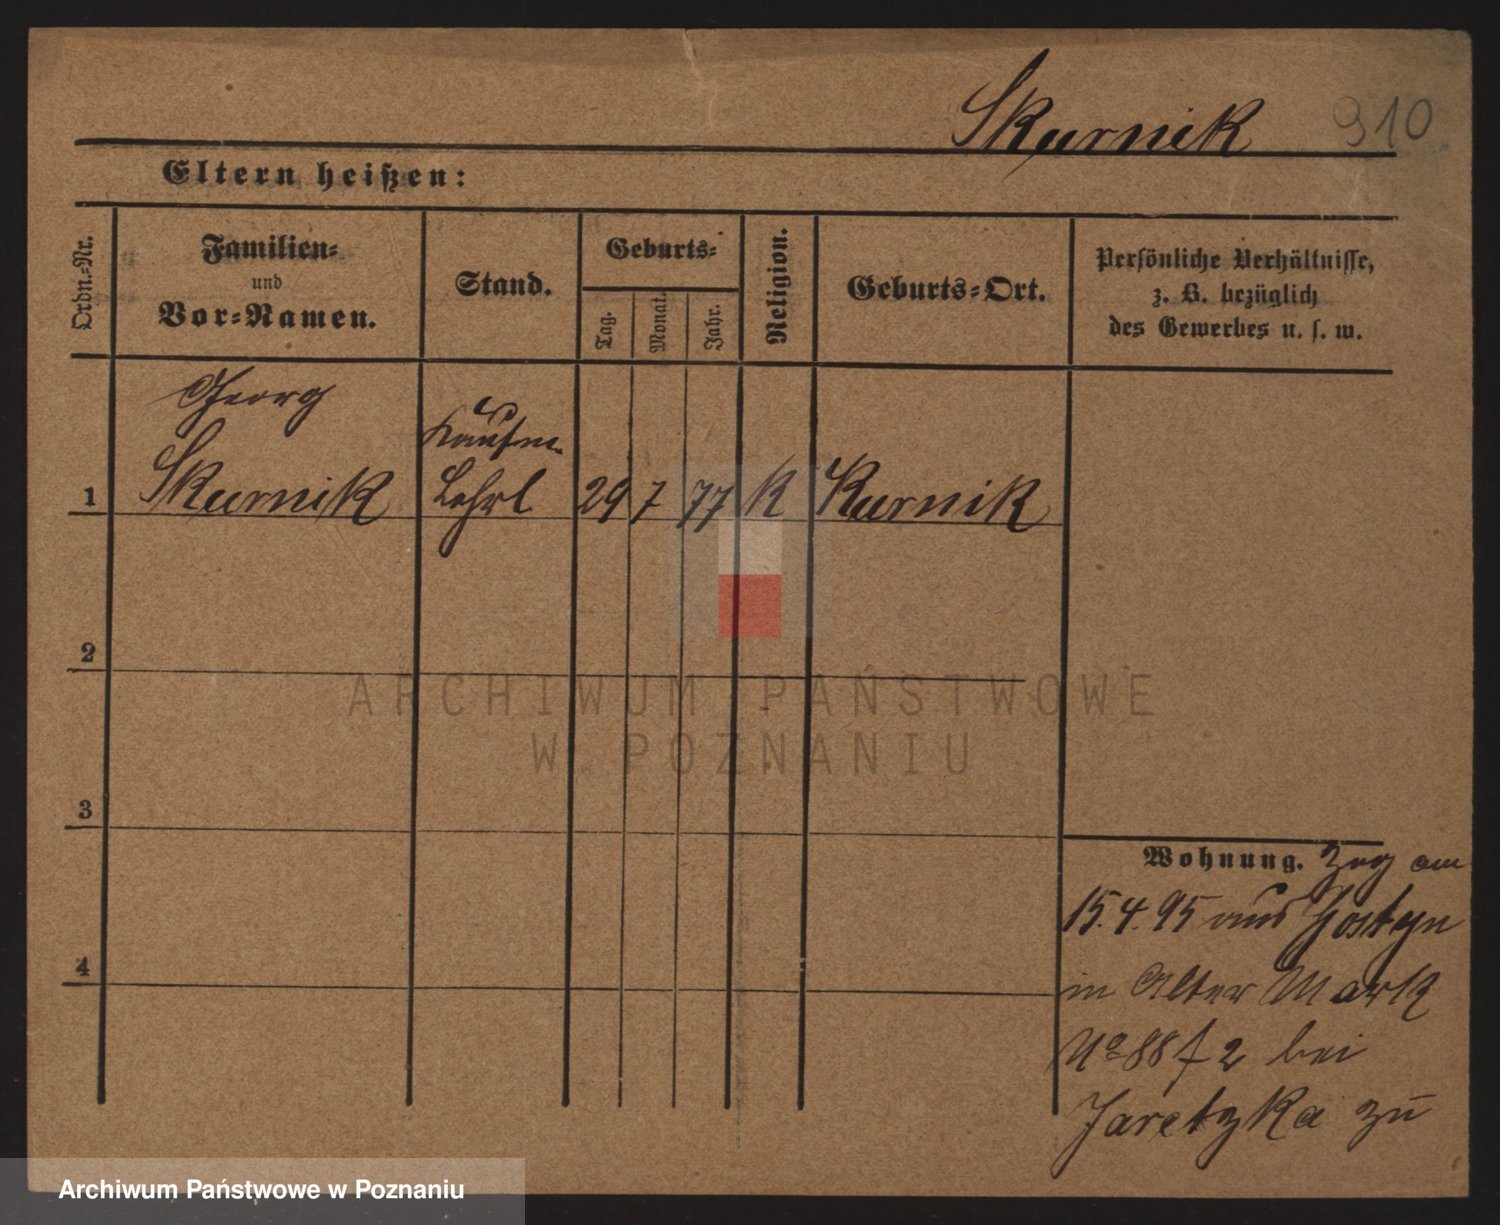 Skurnik 910
Eltern heißen:
Ordn.-Nr.
Familien-
und
Vor-Namen.
Stand.
Geburts-
Tag.
Monat.
Jahr.
Religion.
Geburts-Ort.
Persönliche Verhältnisse,
z. B. bezüglich
des Gewerbes u. s. w.
Georg
Kaufm.
1 Skurnik Lehrl 29 7 77 K Kurnik
2
3
4
Wohnung. Zog am
15.4.95 aus Gostyn
in Alter Markt
No 88 f 2 bei
Jaretzka zu
ARCHIWUM PAŃSTWOWE
W POZNANIU
Archiwum Państwowe w Poznaniu